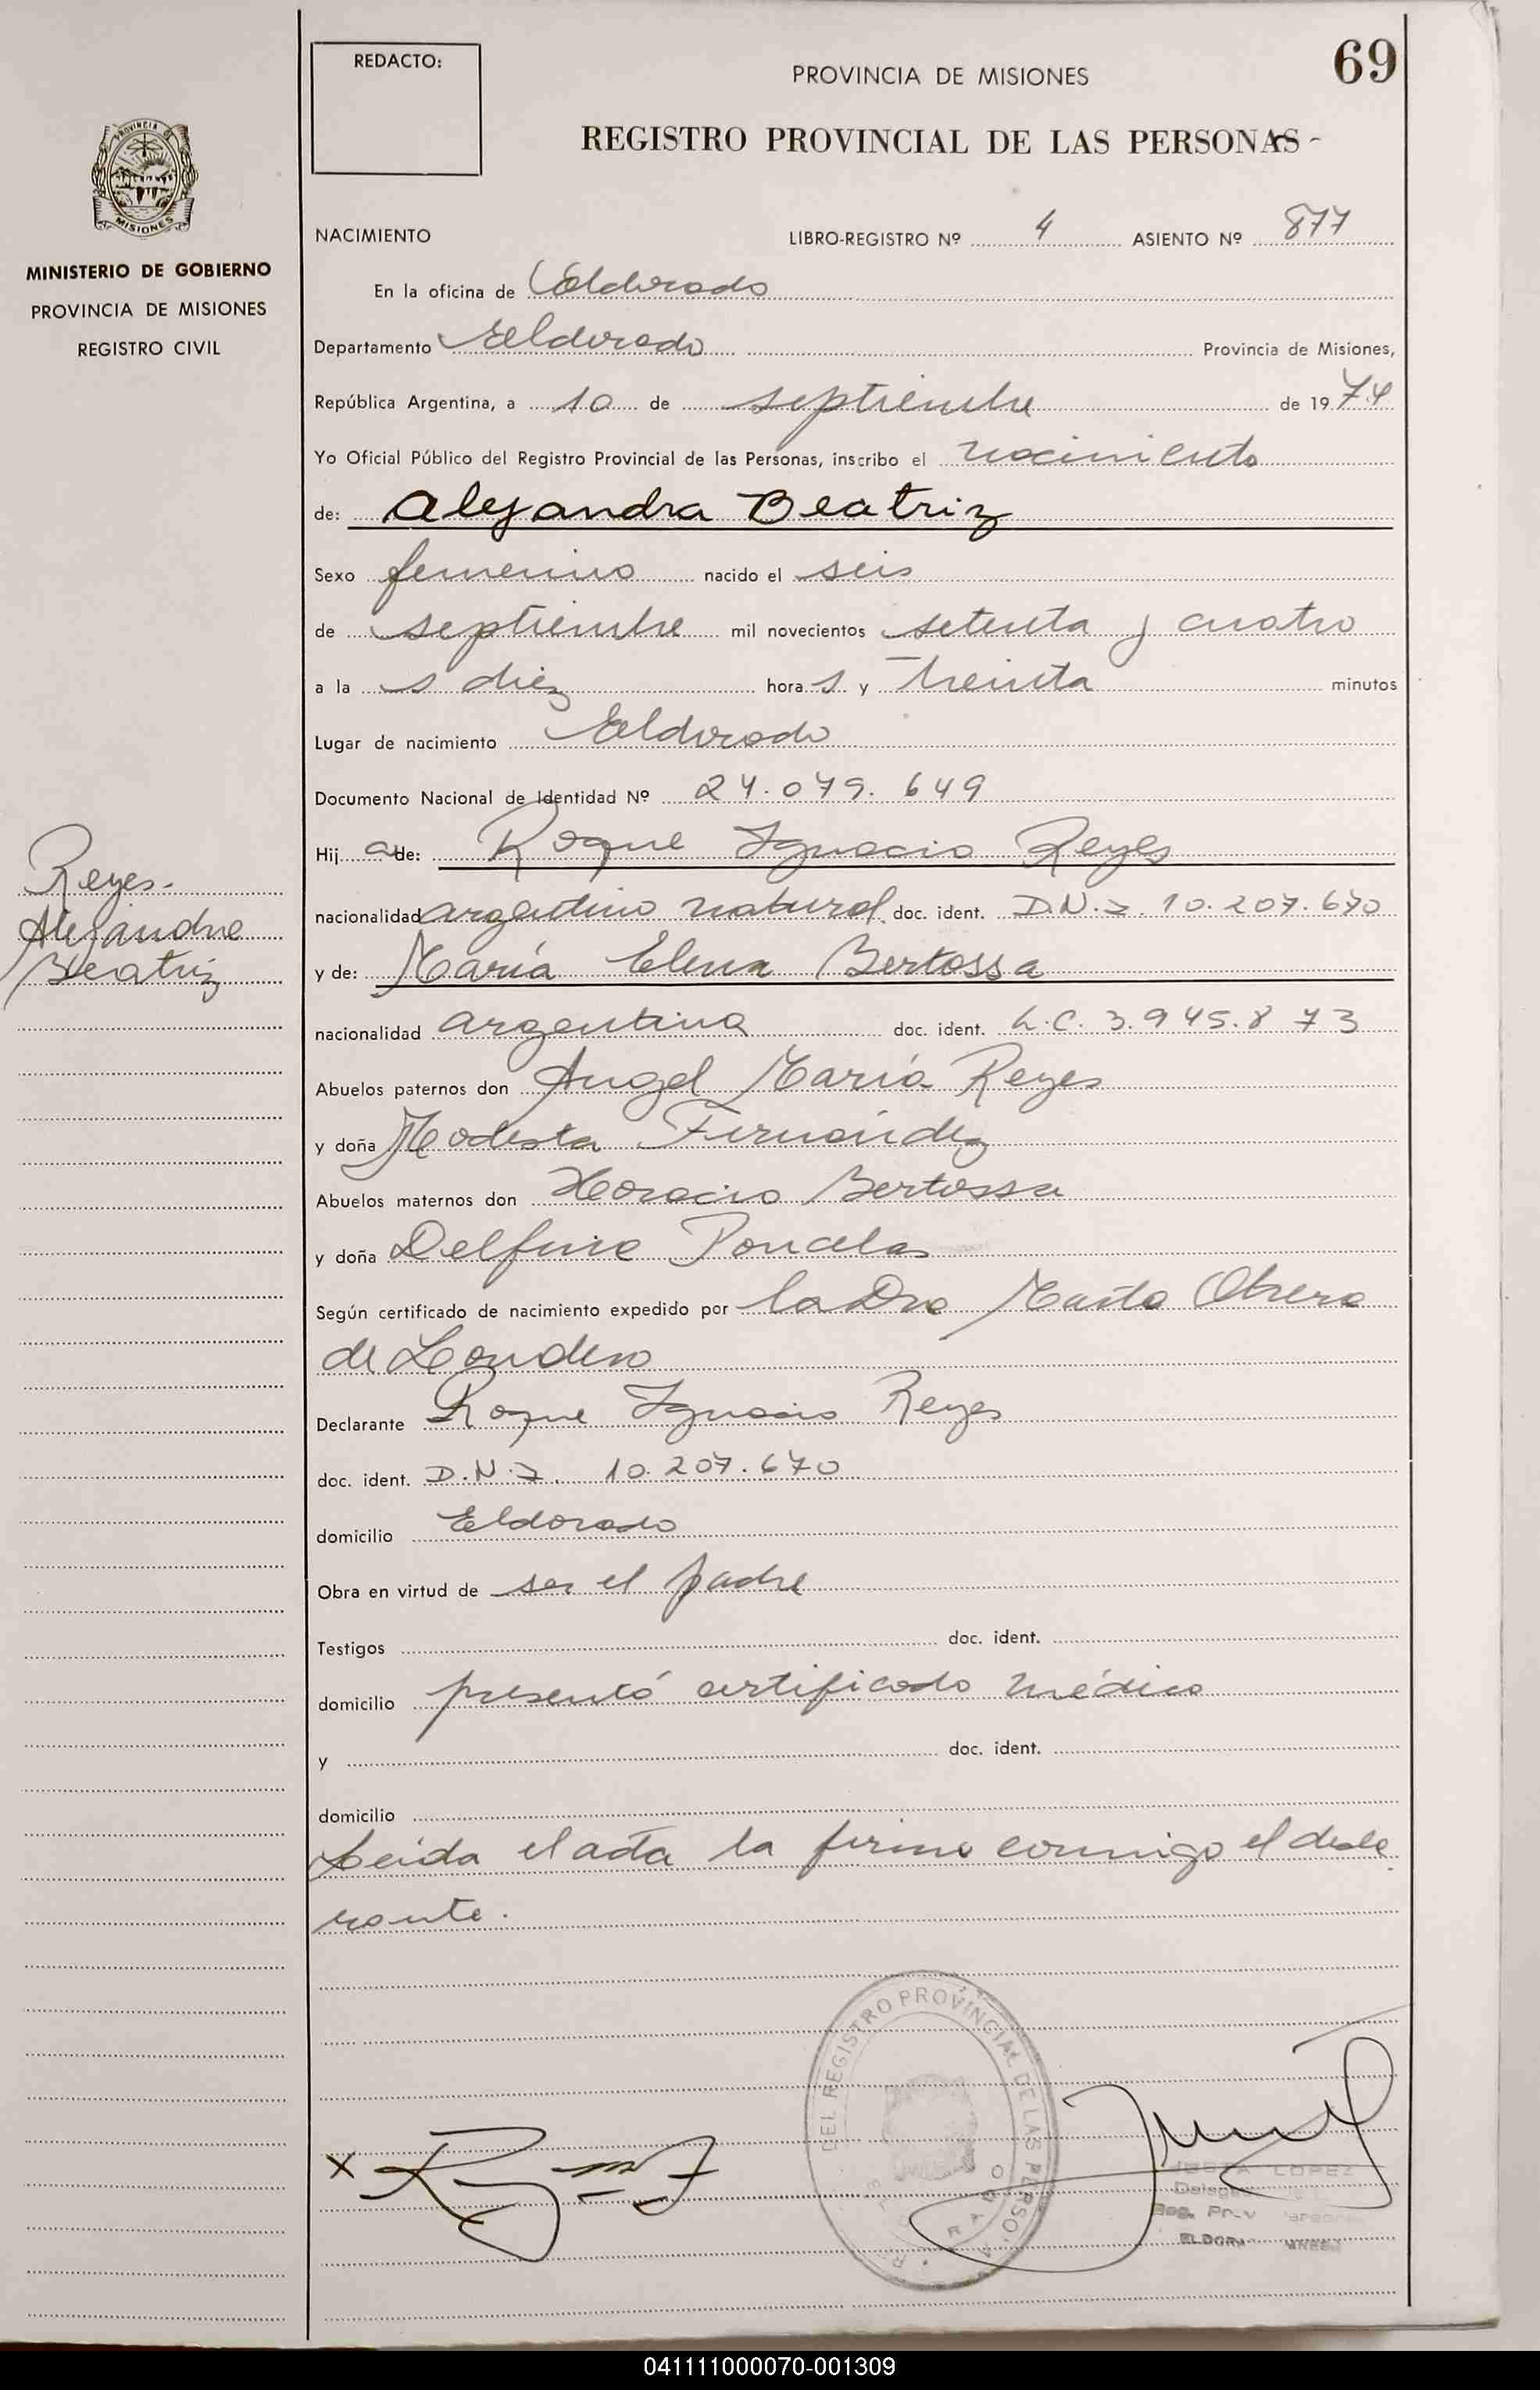 69
REDACTO:
PROVINCIA DE MISIONES
REGISTRO PROVINCIAL DE LAS PERSONAS -
PROVINCIA DE
MISIONES
MINISTERIO DE GOBIERNO
PROVINCIA DE MISIONES
REGISTRO CIVIL
NACIMIENTO LIBRO-REGISTRO Nº 4 ASIENTO Nº 877
En la oficina de Eldorado
Departamento Eldorado Provincia de Misiones,
República Argentina, a 10 de septiembre de 1974
Yo Oficial Público del Registro Provincial de las Personas, inscribo el nacimiento
de: Alejandra Beatriz
Sexo femenino nacido el seis
de septiembre mil novecientos setenta y cuatro
a la s diez hora s y treinta minutos
Lugar de nacimiento Eldorado
Documento Nacional de Identidad Nº 24.079.649
Hij a de: Roque Ignacio Reyes
nacionalidad argentino natural doc. ident. D.N.I. 10.207.670
y de: María Elena Bertossa
nacionalidad argentina doc. ident. L.C. 3.945.873
Abuelos paternos don Angel María Reyes
y doña Modesta Fernández
Abuelos maternos don Horacio Bertossa
y doña Delfina Poncelas
Según certificado de nacimiento expedido por la Dra Marta Obrera
de Londero
Declarante Roque Ignacio Reyes
doc. ident. D.N.I. 10.207.670
domicilio Eldorado
Obra en virtud de ser el padre
Testigos doc. ident.
domicilio presentó certificado médico
y doc. ident.
domicilio
Leida el acta la firma conmigo el decla
rante.
Reyes.
Alejandra
Beatriz
DEL REGISTRO PROVINCIAL DE LAS PERSONAS
X
LOPEZ
041111000070-001309